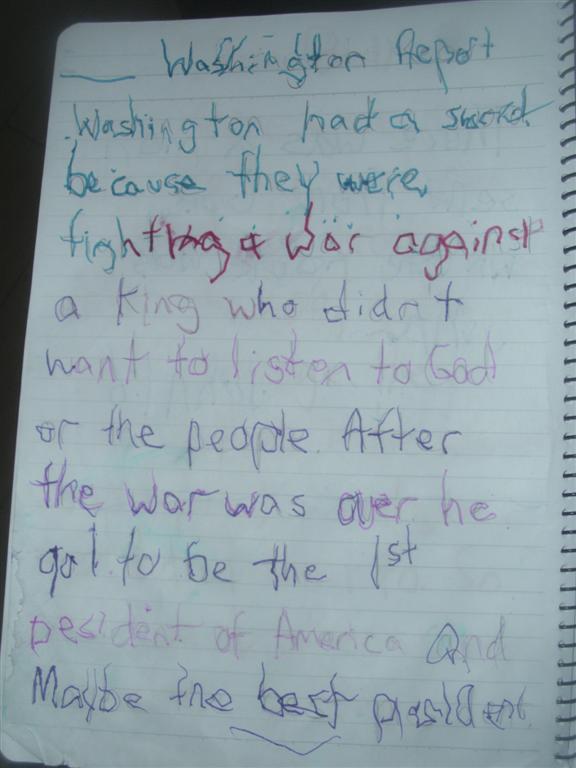 Washington Report
Washington had a sword
because they were
fighting a war against
a King who didnt
want to listen to God
or the people. After
the war was over he
got to be the 1st
pesident of America and
Maybe the best president